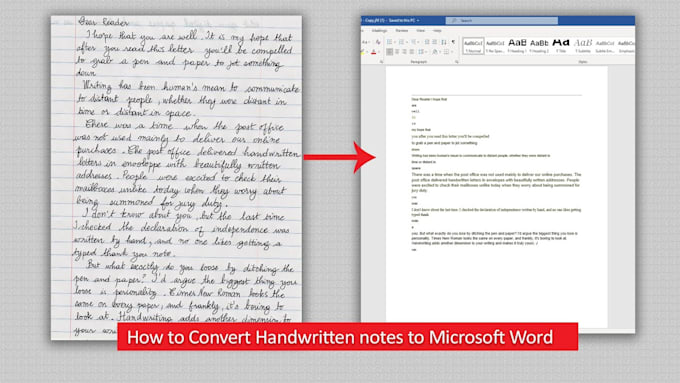 Dear Reader
I hope that you are well. It is my hope that
after you read this letter you'll be compelled
to grab a pen and paper to jot something
down
Writing has been human's mean to communicate
to distant people, whether they were distant in
time or distant in space.
There was a time when the post office
was not used mainly to deliver our online
purchases. The post office delivered handwritten
letters in enveloppe with beautifully written
addresses. People were excited to check their
mailboxes unlike today when they worry about
being summoned for jury duty.
I don't know about you, but the last time
I checked the declaration of independence was
written by hand, and no one likes getting a
typed thank you note.
But what exactly do you loose by ditching the
pen and paper? I'd argue the biggest thing you
loose is personality. Times New Roman looks the
same on every paper, and frankly, it's boring to
look at. Handwriting adds another dimension to
your
Saved to this PC
Search
Mailings Review View Help
Paragraph
Styles
AaBbCcI AaBbCcI AaBb AaBb Aa AaBb AaBbCcI AaBbCcI
Normal No Spac... Heading 1 Heading 2 Title Subtitle Subtle Em... Emphasis
Dear Reader I hope that
well
my hope that
you after you read this letter you'll be compelled
to grab a pen and paper to jot something
down
Writing has been human's mean to communicate to distant people, whether they were distant in
time or distant in
space
There was a time when the post office was not used mainly to deliver our online purchases. The
post office delivered handwritten letters in enveloppe with beautifully written addresses. People
were excited to check their mailboxes unlike today when they worry about being summoned for
jury duty.
I don't know about the last time. I checked the declaration of independence written by hand, and no one likes getting
typed thank
you. But what exactly do you lose by ditching the pen and paper? I'd argue the biggest thing you lose is
personality. Times New Roman looks the same on every paper, and frankly, it's boring to look at
Handwriting adds another dimension to your writing and makes it truly yours.
How to Convert Handwritten notes to Microsoft Word